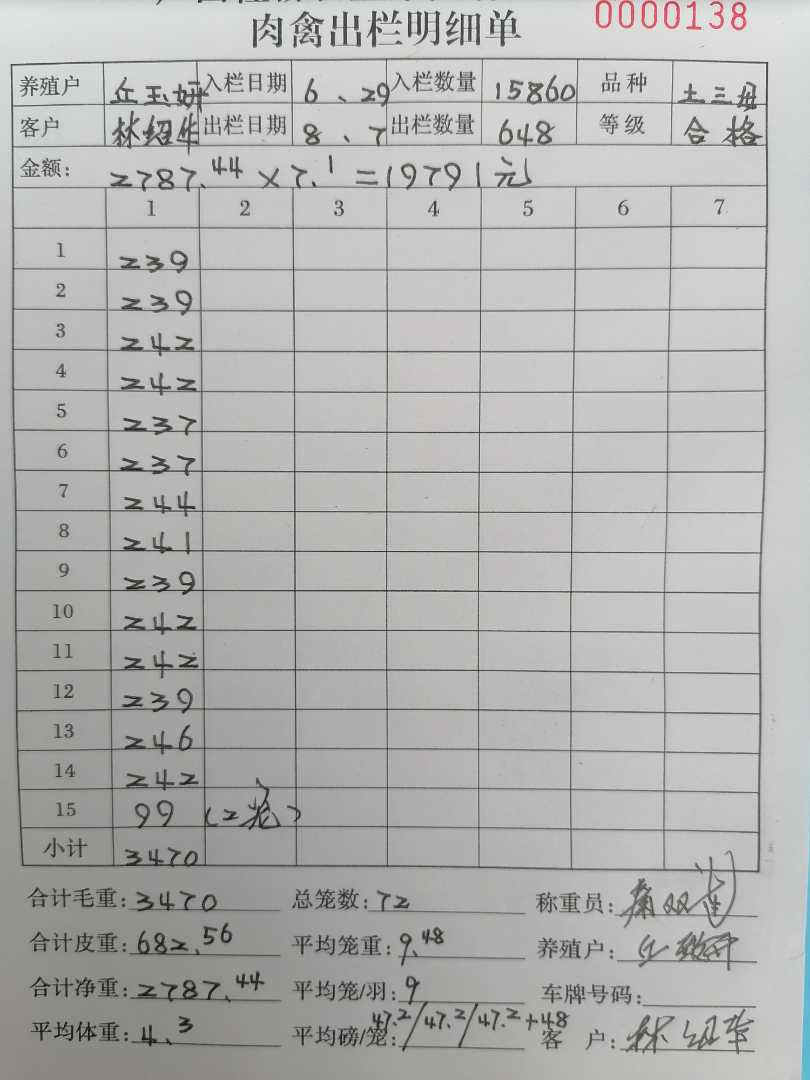 肉禽出栏明细单
0000138
养殖户 丘玉妍 入栏日期 6、29 入栏数量 15860 品种 土三母
客户 林绍华 出栏日期 8、7 出栏数量 648 等级 合格
金额: 2787.44×7.1=19791元
1 2 3 4 5 6 7
1 239
2 239
3 242
4 242
5 237
6 237
7 244
8 241
9 239
10 242
11 242
12 239
13 246
14 242
15 99 (2笼)
小计 3470
合计毛重: 3470 总笼数: 72 称重员:
合计皮重: 682.56 平均笼重: 9.48 养殖户:
合计净重: 2787.44 平均笼/羽: 9 车牌号码:
平均体重: 4.3 平均磅/笼: 47.2/47.2/47.2+48 客户: 林绍华